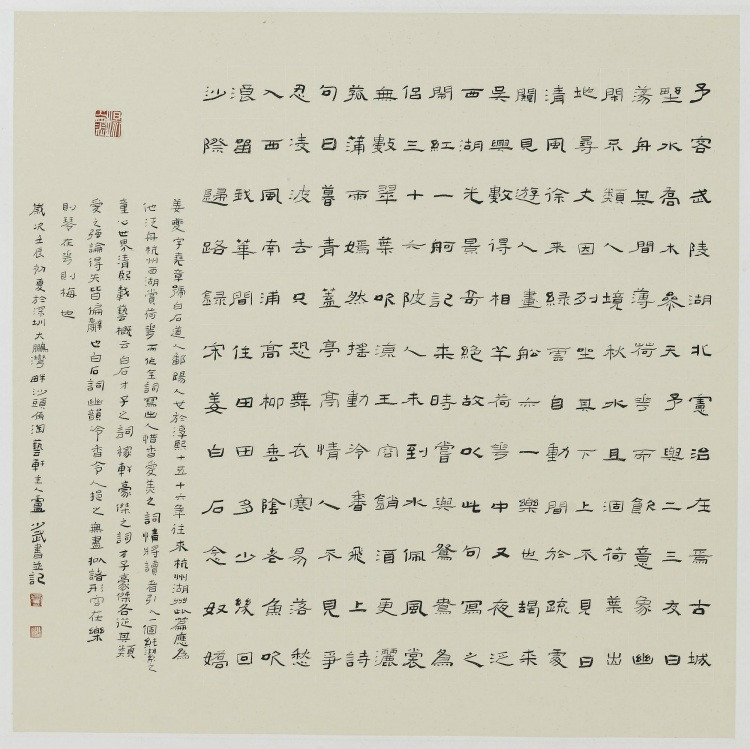 予客武陵湖北憲治在焉古城
野水喬木參天予與二三友日
蕩舟其間薄荷花而飲意象幽
閑不類人境秋水且涸荷葉出
地尋丈因列坐其下上不見日
清風徐來綠雲自動間於疏處
闚見遊人畫船亦一樂也朅來
吳興數得相羊荷花中又夜泛
西湖光景奇絕故以此句寫之
鬧紅一舸記來時嘗與鴛鴦為
侶三十六陂人未到水佩風裳
無數翠葉吹涼玉容銷酒更灑
菰蒲雨嫣然搖動冷香飛上詩
句日暮青蓋亭亭情人不見爭
忍凌波去只恐舞衣寒易落愁
入西風南浦高柳垂陰老魚吹
浪留我華間住田田多少幾回
沙際歸路錄宋姜白石念奴嬌
姜夔字堯章號白石道人鄱陽人也於淳熙十五十六年往來杭州湖州此篇應為
他泛舟杭州西湖賞荷花而作全詞寫幽人惜香愛美之詞情將讀者引入一個純潔之
童心世界清熙載藝概云白石才子之詞稼軒豪傑之詞才子豪傑各從其類
愛之強論得失皆偏辭也白石詞幽韻冷香令人挹之無盡擬諸形容在樂
則琴在花則梅也
歲次壬辰初夏於深圳大鵬灣畔沙頭角淘藝軒主人盧少武書並記